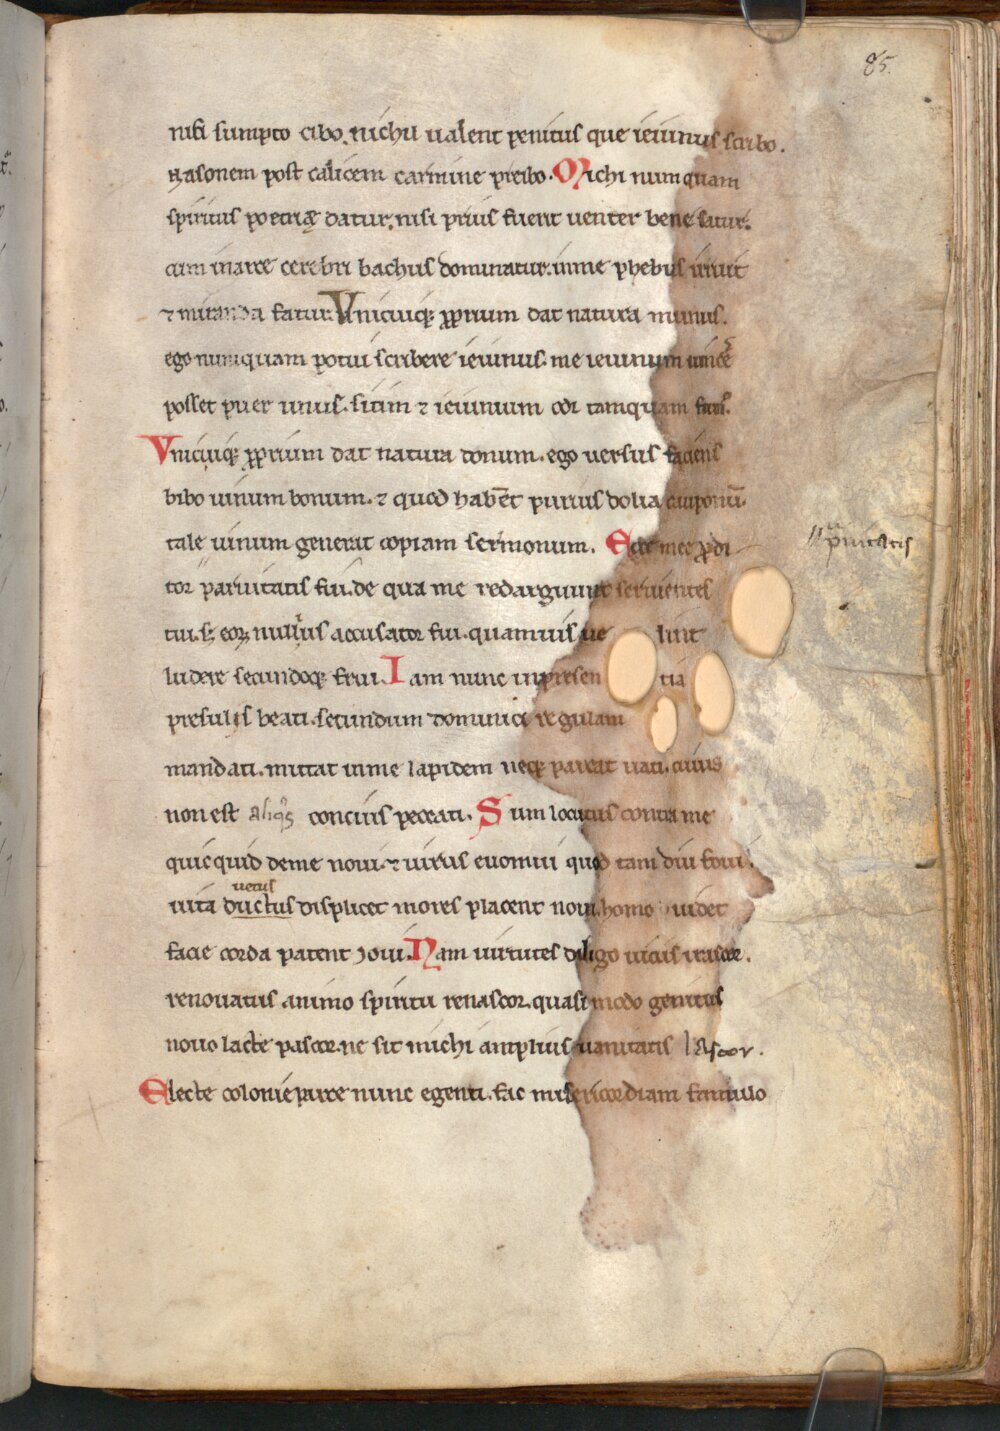 85.
nisi sumpto cibo. nichil ualent penitus que ieiunus scribo.
nasonem post calicem carmine preibo. Michi numquam
spiritus poetriæ datur. nisi prius fuerit uenter bene satur.
cum in arce cerebri bachus dominatur. in me phebus irruit
⁊ miranda fatur. Vnicuiq; ꝓprium dat natura munus.
ego numquam potui scribere ieiunus. me ieiunum uincere
posset puer unus. sitim ⁊ ieiunium odi tamquam fun⁹.
Vnicuiq; ꝓprium dat natura donum. ego uersus faciens
bibo uinum bonum. ⁊ quod habent purius dolia cauponū.
tale uinum generat copiam sermonum. Ecce mee ꝓdi
tor prauitatis fui. de qua me redarguunt seruientes
tui. s; eoꝝ nullius accusator fui. quamuis ue lint
ludere seculoq; frui. Iam nunc in presen tia
presulis beati. secundum dominici regulam
mandati. mittat in me lapidem neq; parcat uati. cuius
non est aliq's conciuis peccati. Sum locutus contra me
quicquid de me noui. ⁊ uirus euomui quod tam diu foui.
uetus
uita ductus displicet mores placent noui. homo uidet
facie corda patent ioui. Nam uirtutes diligo uiciis irascor.
renouatus animo spiritu renascor. quasi modo genitus
nouo lacte pascor. ne sit michi amplius uanitatis Vascor.
Electe colonie parce nunc egenti. fac misericordiam famulo
prauitatis